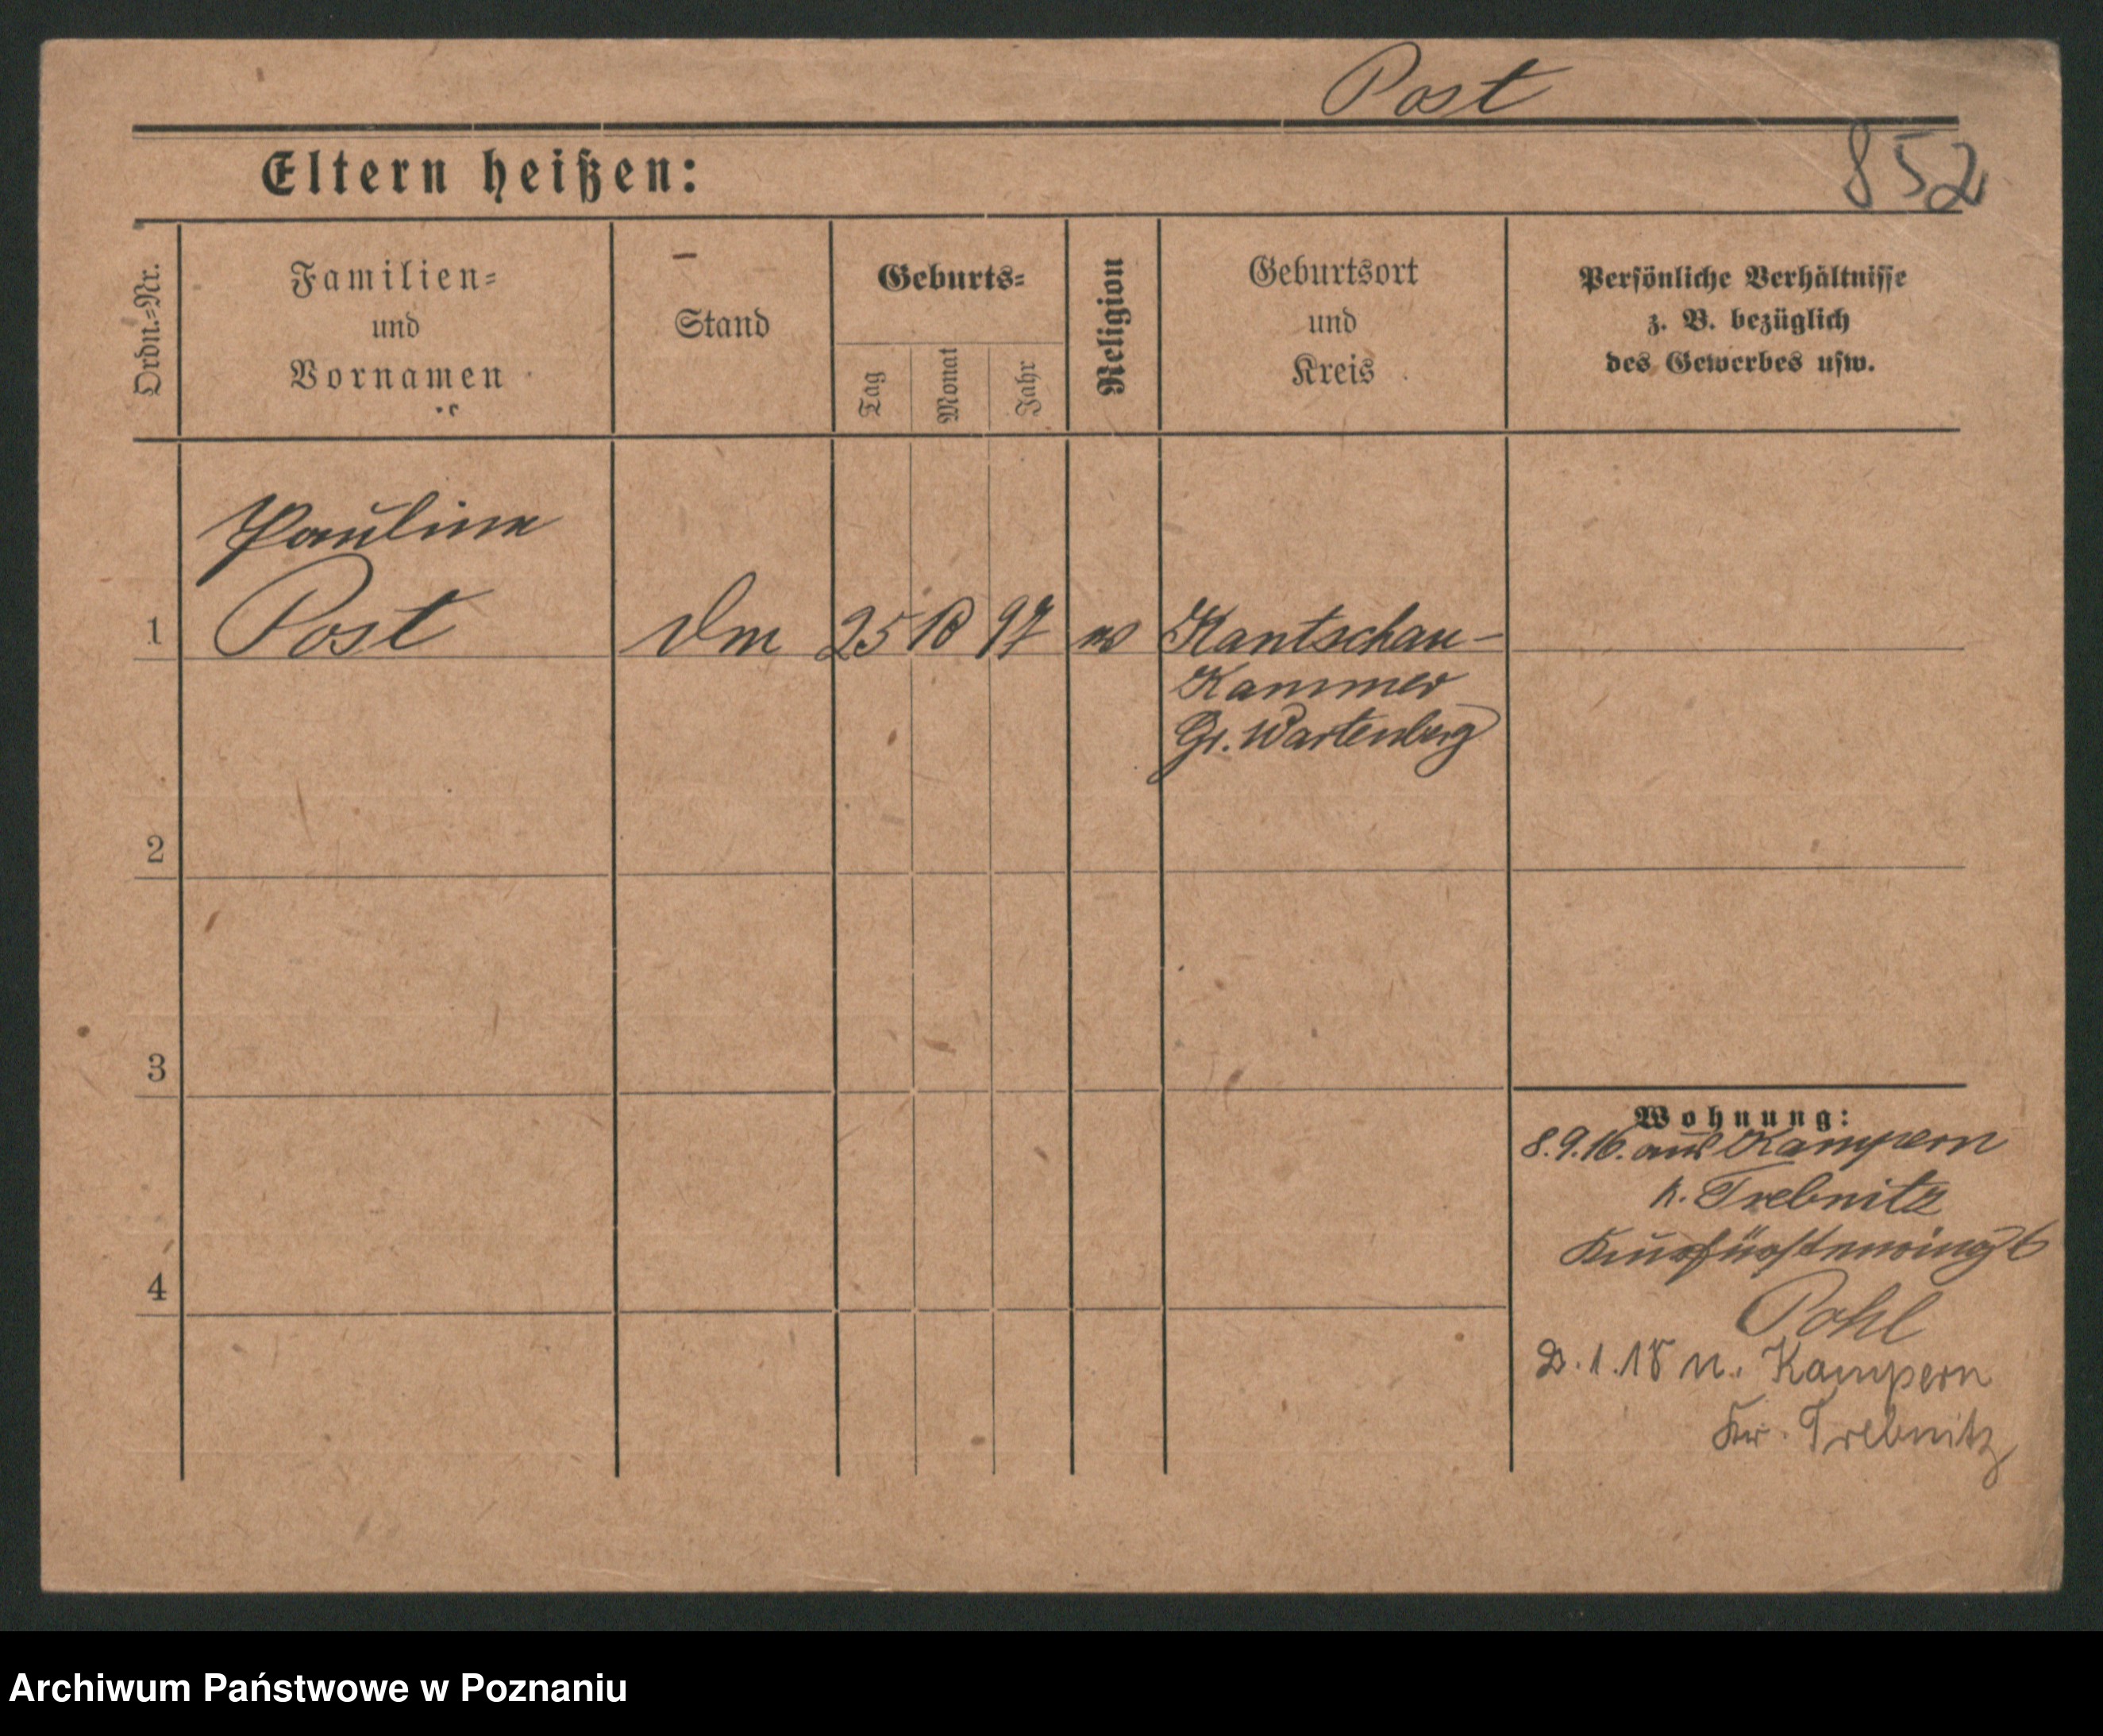 Post
852
Eltern heißen:
Ordn.-Nr.
Familien-
und
Vornamen
Stand
Geburts-
Tag
Monat
Jahr
Religion
Geburtsort
und
Kreis
Persönliche Verhältnisse
z. B. bezüglich
des Gewerbes usw.
Pauline
1 Post 25 10 97 Kantschau-
Kammer
Gr. Wartenberg
2
3
Wohnung:
8.9.16. aus Kampern
k. Trebnitz
Kurfürstenring 6
4
Pohl
2.1.18 n. Kampern
Kr. Trebnitz
Archiwum Państwowe w Poznaniu